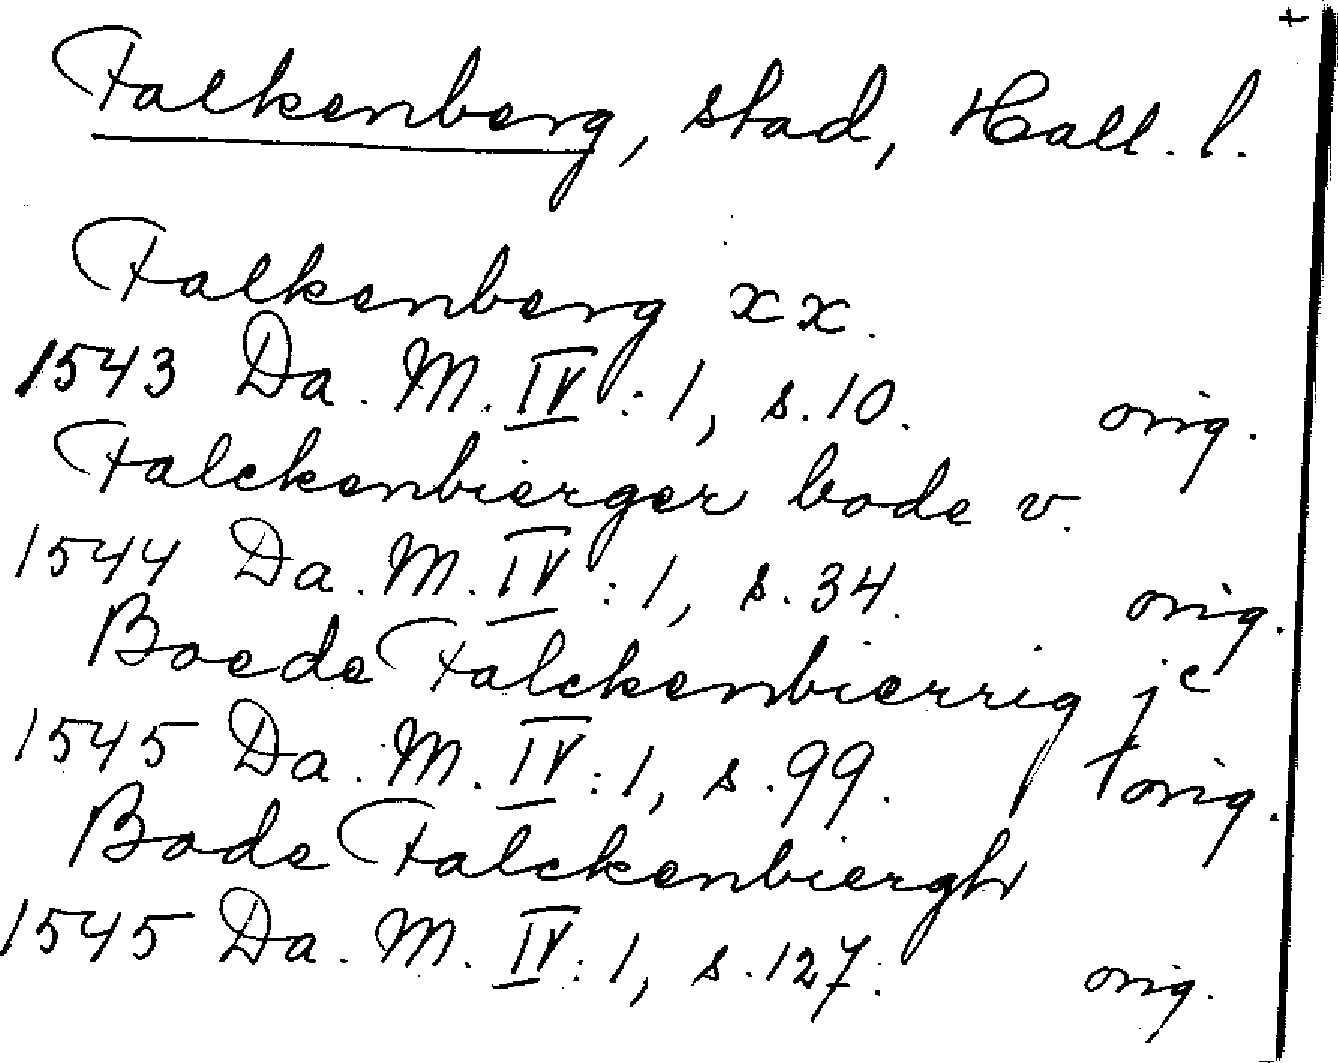 +
Falkenberg, stad, Hall. l.
Falkenberg xx.
1543 Da. M. IV:1, s.10. orig.
Falckenbierger bode v.
1544 Da. M. IV:1, s.34. orig.
Boede Falckenbierrig je
1545 Da. M. IV:1, s.99. † orig.
Bode Falckenbiergh
1545 Da. M. IV:1, s.127. orig.